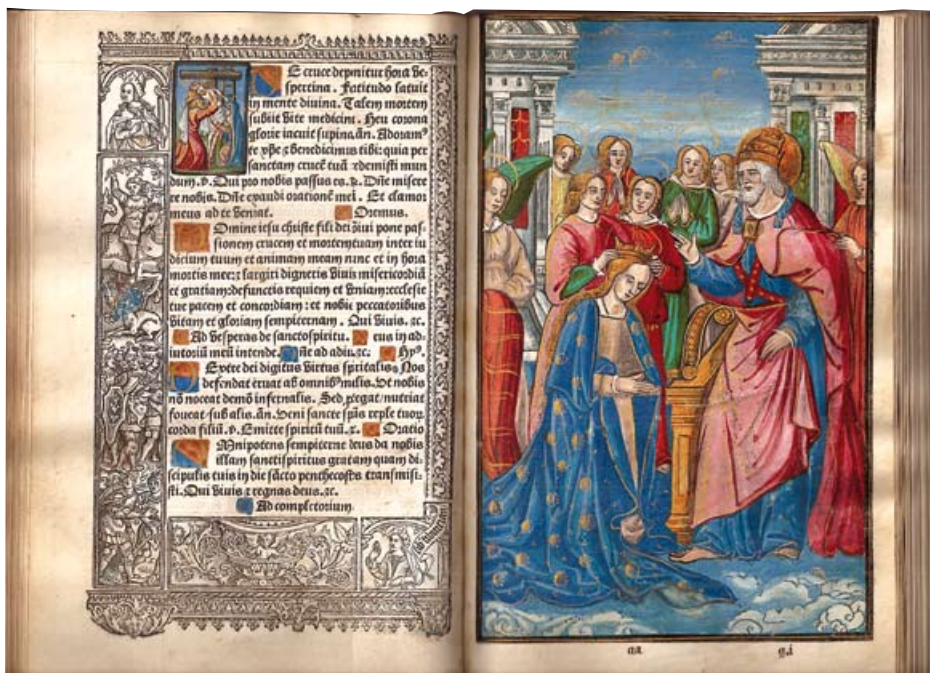 E cruce deponitur hora ve-
spertina. Fortitudo latuit
in mente divina. Talem mortem
subiit vite medicina. Heu corona
glorie iacuit supina. añ. Adoram⁹
te xp̄e ⁊ benedicimus tibi: quia per
sanctam crucē tuā redemisti mun
dum. v̄. Qui pro nobis passus es. R. Dñe misere
re nobis. Dñe exaudi orationē meā. Et clamor
meus ad te veniat. Oremus.
Omine iesu christe fili dei viui pone pas-
sionem crucem et mortem tuam inter iu
dicium tuum et animam meam nunc et in hora
mortis mee: ⁊ largiri digneris viuis misericordiā
et gratiam: defunctis requiem et veniam: ecclesie
tue pacem et concordiam: et nobis peccatoribus
vitam et gloriam sempiternam. Qui viuis. ⁊c.
Ad vesperas de sancto spiritu. eus in ad-
iutoriū meū intende. ñe ad adiu. ⁊c. Hy⁹.
Extre dei digitus virtus spiritalis. Nos
defendat eruat ab omnib⁹ malis. Ut nobis
nō noceat demō infernalis. Sed protegat/nutriat
foueat/sub alis. añ. Veni sancte sp̄us reple tuoꝝ
corda filiū. v̄. Emitte spiritū tuū. ⁊. Oratio
Mnipotens sempiterne deus da nobis
illam sancti spiritus gratiam quam di-
scipulis tuis in die sācto penthecostes transmisi-
sti. Qui viuis ⁊ regnas deus. ⁊c.
Ad completorium
g.i